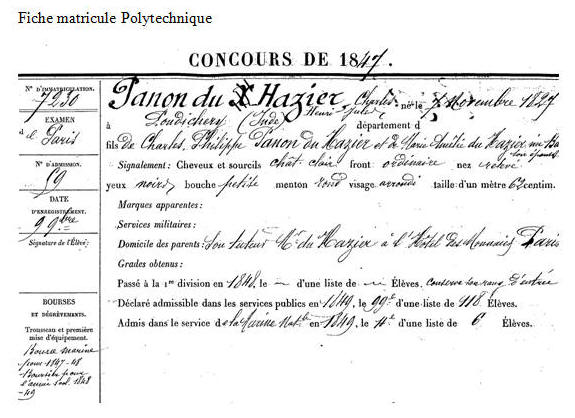 Fiche matricule Polytechnique
CONCOURS DE 1847.
N° D'IMMATRICULATION.
7230
EXAMEN
d e Paris
N° D'ADMISSION.
59
DATE
D'ENREGISTREMENT.
9 9bre
Signature de l'Élève:
BOURSES
ET DÉGRÈVEMENTS.
Trousseau et première
mise d'équipement.
Bourse marine
pour 1847-48
Boursier pour
l'année scol. 1848
-49
Panon du Hazier, Charles
Henri Jules né le 7 Novembre 1827
à Pondichéry (Inde) département d
fils de Charles, Philippe Panon du Hazier et de Marie Amélie du Hazier
son épouse
Signalement: Cheveux et sourcils chât. clair front ordinaire nez relevé
yeux noirs bouche petite menton rond visage arrondi taille d'un mètre 62 centim.
Marques apparentes:
Services militaires:
Domicile des parents: Son tuteur Mr. du Hazier à l'Hôtel des Monnaies Paris
Grades obtenus:
Passé à la 1re division en 1848, le — d'une liste de — Élèves. Conserve son rang d'entrée
Déclaré admissible dans les services publics en 1849, le 99e d'une liste de 118 Élèves.
Admis dans le service de la Marine Natle en 1849, le 4e d'une liste de 6 Élèves.